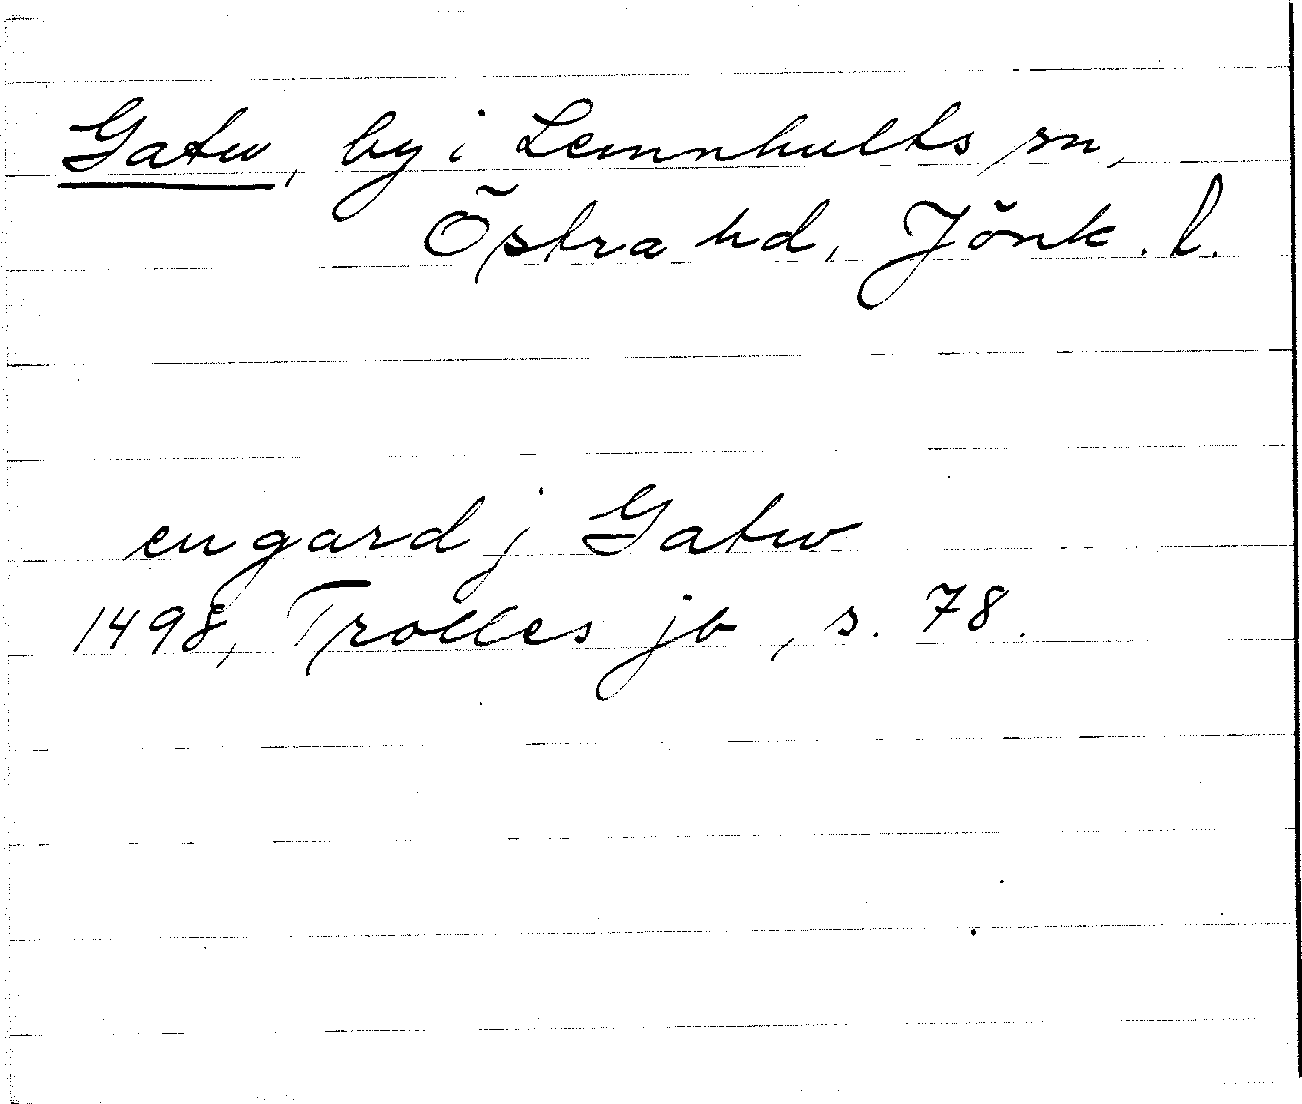 Gatu, by i Lemnhults sn,
Östra hd, Jönk. l.
en gard j Gatw
1498, Trolles jb, s. 78.